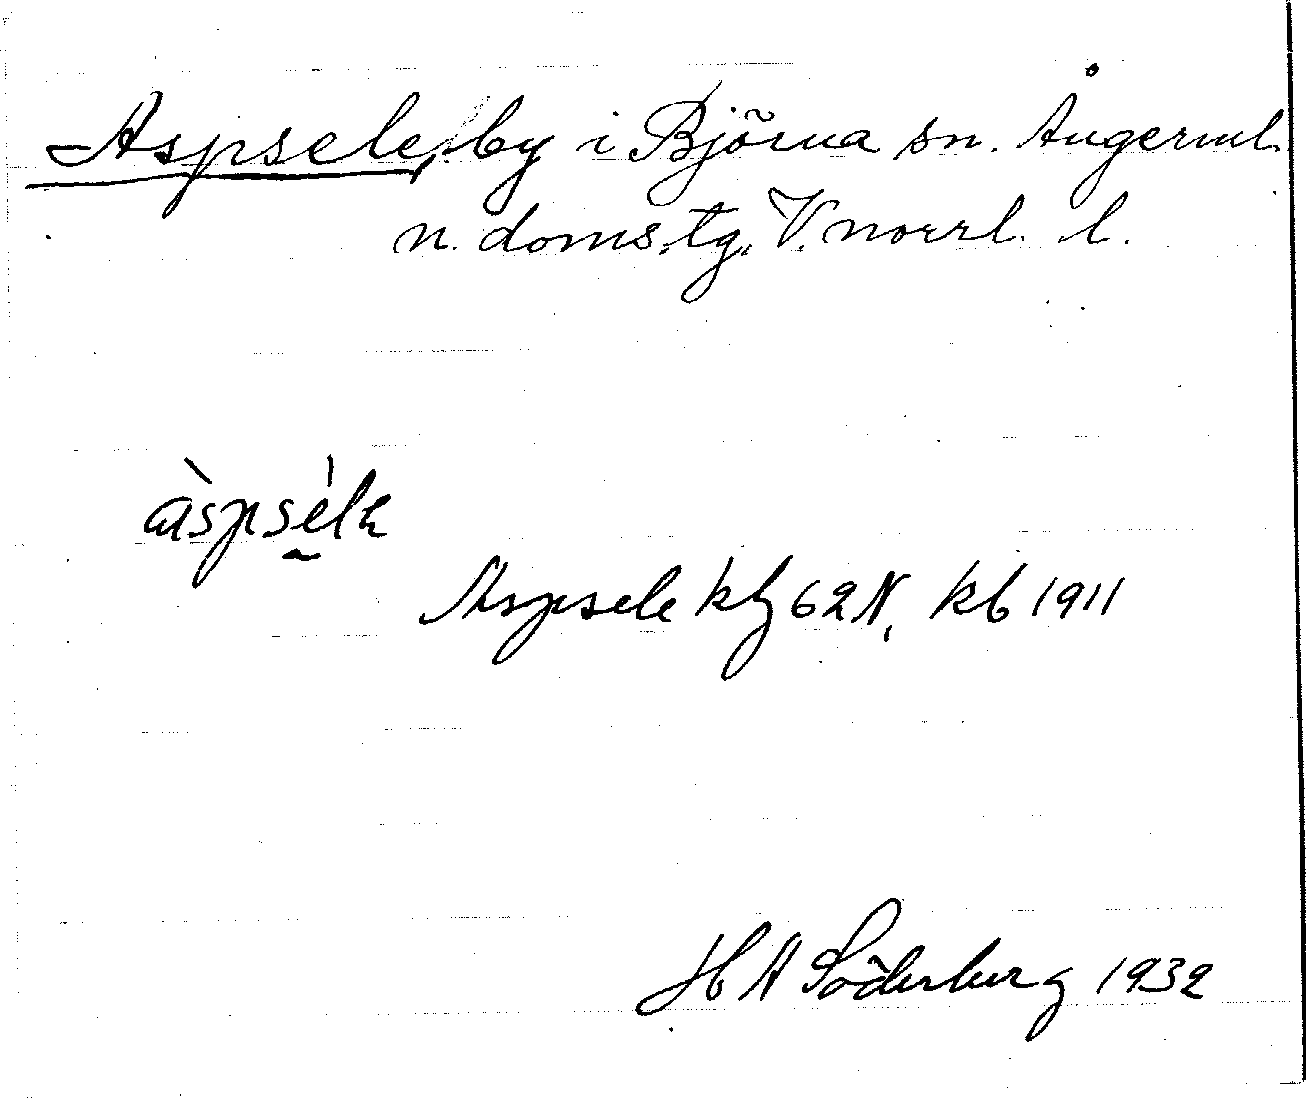 Aspsele, by i Björna sn. Ångerml.
n. doms.tg, V. norrl. l.
àspsélɛ
Aspsele kbg 62 N, kb 1911
H A Söderberg 1932